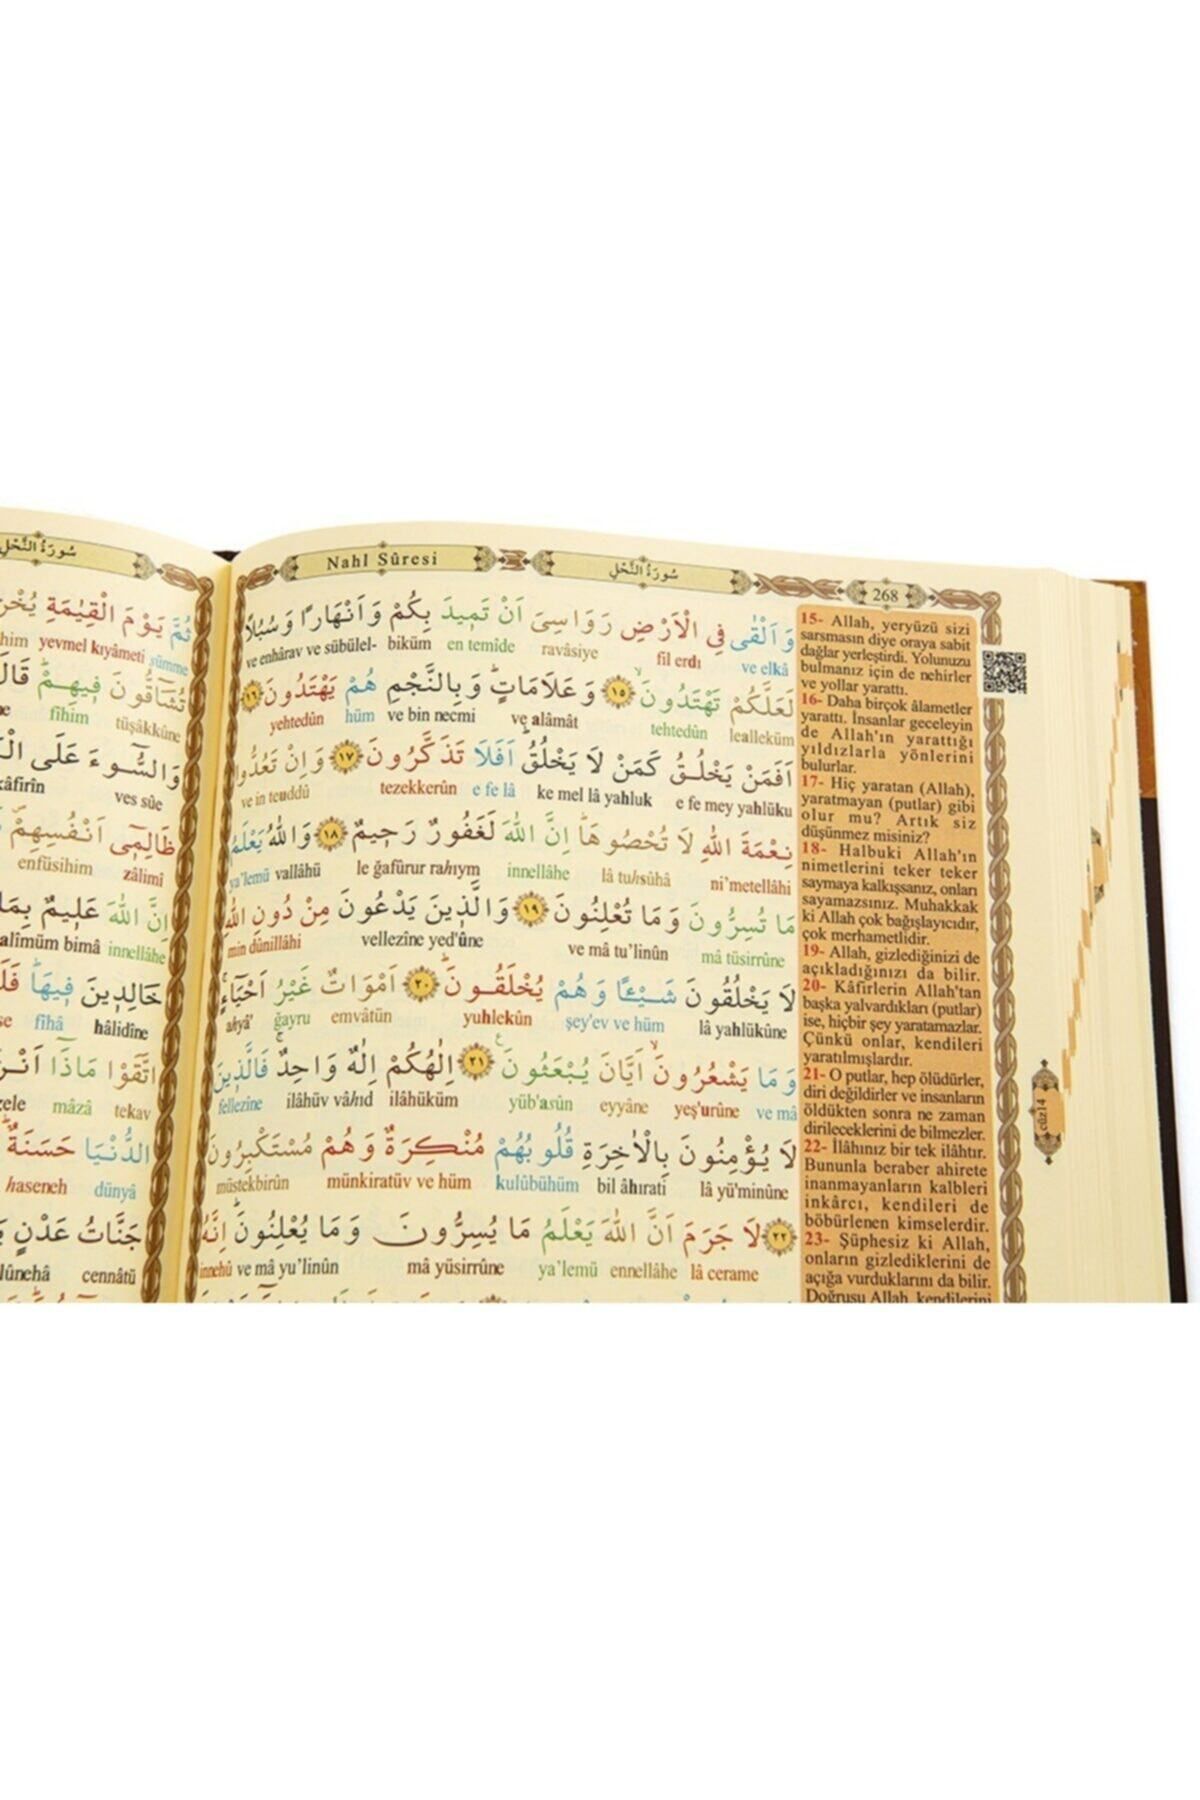 سُورَةُ النَّحْلِ
ثُمَّ يَوْمَ الْقِيٰمَةِ
yevmel kıyâmeti sümme
تُشَٓاقُّونَ ف۪يهِمْ قَالَ
fîhim tüşâkkûne
وَالسُّٓوءَ عَلَى
kâfirîn ves sûe
ظَالِم۪ٓي اَنْفُسِهِمْ
enfüsihim zâlimî
اِنَّ اللّٰهَ عَل۪يمٌ بِمَا
alîmüm bimâ innellâhe
خَالِد۪ينَ ف۪يهَا
fîhâ hâlidîne
اتَّقَوْا مَاذَٓا
mâzâ tekav
الدُّنْيَا حَسَنَةٌ
haseneh dünyâ
جَنَّاتُ عَدْنٍ
cennâtü
Nahl Sûresi
سُورَةُ النَّحْلِ
268
وَاَلْقٰى فِي الْاَرْضِ رَوَاسِيَ اَنْ تَم۪يدَ بِكُمْ وَاَنْهَارًا وَسُبُلًا
ve enhârav ve sübülel- biküm en temîde ravâsiye fil erdı ve elkâ
لَعَلَّكُمْ تَهْتَدُونَۙ ﴿١٥﴾ وَعَلَامَاتٍۜ وَبِالنَّجْمِ هُمْ يَهْتَدُونَ ﴿١٦﴾
yehtedûn hüm ve bin necmi ve alâmât tehtedûn lealleküm
اَفَمَنْ يَخْلُقُ كَمَنْ لَا يَخْلُقُۜ اَفَلَا تَذَكَّرُونَ ﴿١٧﴾ وَاِنْ تَعُدُّوا
ve in teuddû tezekkerûn e fe lâ ke mel lâ yahluk e fe mey yahlüku
نِعْمَةَ اللّٰهِ لَا تُحْصُوهَاۜ اِنَّ اللّٰهَ لَغَفُورٌ رَح۪يمٌ ﴿١٨﴾ وَاللّٰهُ يَعْلَمُ
ya'lemü vallâhü le ğafûrur rahıym innellâhe lâ tuhsûhâ ni'metellâhi
مَا تُسِرُّونَ وَمَا تُعْلِنُونَ ﴿١٩﴾ وَالَّذ۪ينَ يَدْعُونَ مِنْ دُونِ اللّٰهِ
min dûnillâhi vellezîne yed'ûne ve mâ tu'linûn mâ tüsirrûne
لَا يَخْلُقُونَ شَيْـًٔا وَهُمْ يُخْلَقُونَۜ ﴿٢٠﴾ اَمْوَاتٌ غَيْرُ اَحْيَٓاءٍۚ
ahyâ' ğayru emvâtün yuhlekûn şey'ev ve hüm lâ yahlükûne
وَمَا يَشْعُرُونَۙ اَيَّانَ يُبْعَثُونَ۟ ﴿٢١﴾ اِلٰهُكُمْ اِلٰهٌ وَاحِدٌۚ فَالَّذ۪ينَ
fellezîne ilâhüv vâhıd ilâhüküm yüb'asûn eyyâne yeş'urûne ve mâ
لَا يُؤْمِنُونَ بِالْاٰخِرَةِ قُلُوبُهُمْ مُنْكِرَةٌ وَهُمْ مُسْتَكْبِرُونَ
müstekbirûn münkiratüv ve hüm kulûbühüm bil âhırati lâ yü'minûne
﴿٢٢﴾ لَا جَرَمَ اَنَّ اللّٰهَ يَعْلَمُ مَا يُسِرُّونَ وَمَا يُعْلِنُونَۜ اِنَّهُ
innehû ve mâ yu'linûn mâ yüsirrûne ya'lemü ennellâhe lâ cerame
15- Allah, yeryüzü sizi
sarsmasın diye oraya sabit
dağlar yerleştirdi. Yolunuzu
bulmanız için de nehirler
ve yollar yarattı.
16- Daha birçok âlametler
yarattı. İnsanlar geceleyin
de Allah'ın yarattığı
yıldızlarla yönlerini
bulurlar.
17- Hiç yaratan (Allah),
yaratmayan (putlar) gibi
olur mu? Artık siz
düşünmez misiniz?
18- Halbuki Allah'ın
nimetlerini teker teker
saymaya kalkışsanız, onları
sayamazsınız. Muhakkak
ki Allah çok bağışlayıcıdır,
çok merhametlidir.
19- Allah, gizlediğinizi de
açıkladığınızı da bilir.
20- Kâfirlerin Allah'tan
başka yalvardıkları (putlar)
ise, hiçbir şey yaratamazlar.
Çünkü onlar, kendileri
yaratılmışlardır.
21- O putlar, hep ölüdürler,
diri değildirler ve insanların
öldükten sonra ne zaman
dirileceklerini de bilmezler.
22- İlâhınız bir tek ilâhtır.
Bununla beraber ahirete
inanmayanların kalbleri
inkârcı, kendileri de
böbürlenen kimselerdir.
23- Şüphesiz ki Allah,
onların gizlediklerini de
açığa vurduklarını da bilir.
Doğrusu Allah, kendilerini
cüz14